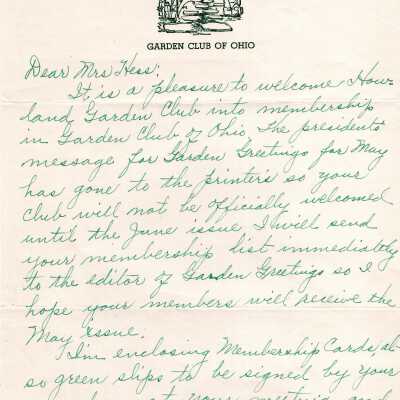 GARDEN CLUB OF OHIO
Dear Mrs Hess:
It is a pleasure to welcome How-
land Garden Club into membership
in Garden Club of Ohio. The presidents'
message for Garden Greetings for May
has gone to the printers so your
club will not be officially welcomed
until the June issue. I will send
your membership list immediately
to the editor of Garden Greetings so I
hope your members will receive the
May issue.
I'm enclosing Membership Cards, al-
so green slips to be signed by your
at your meeting and